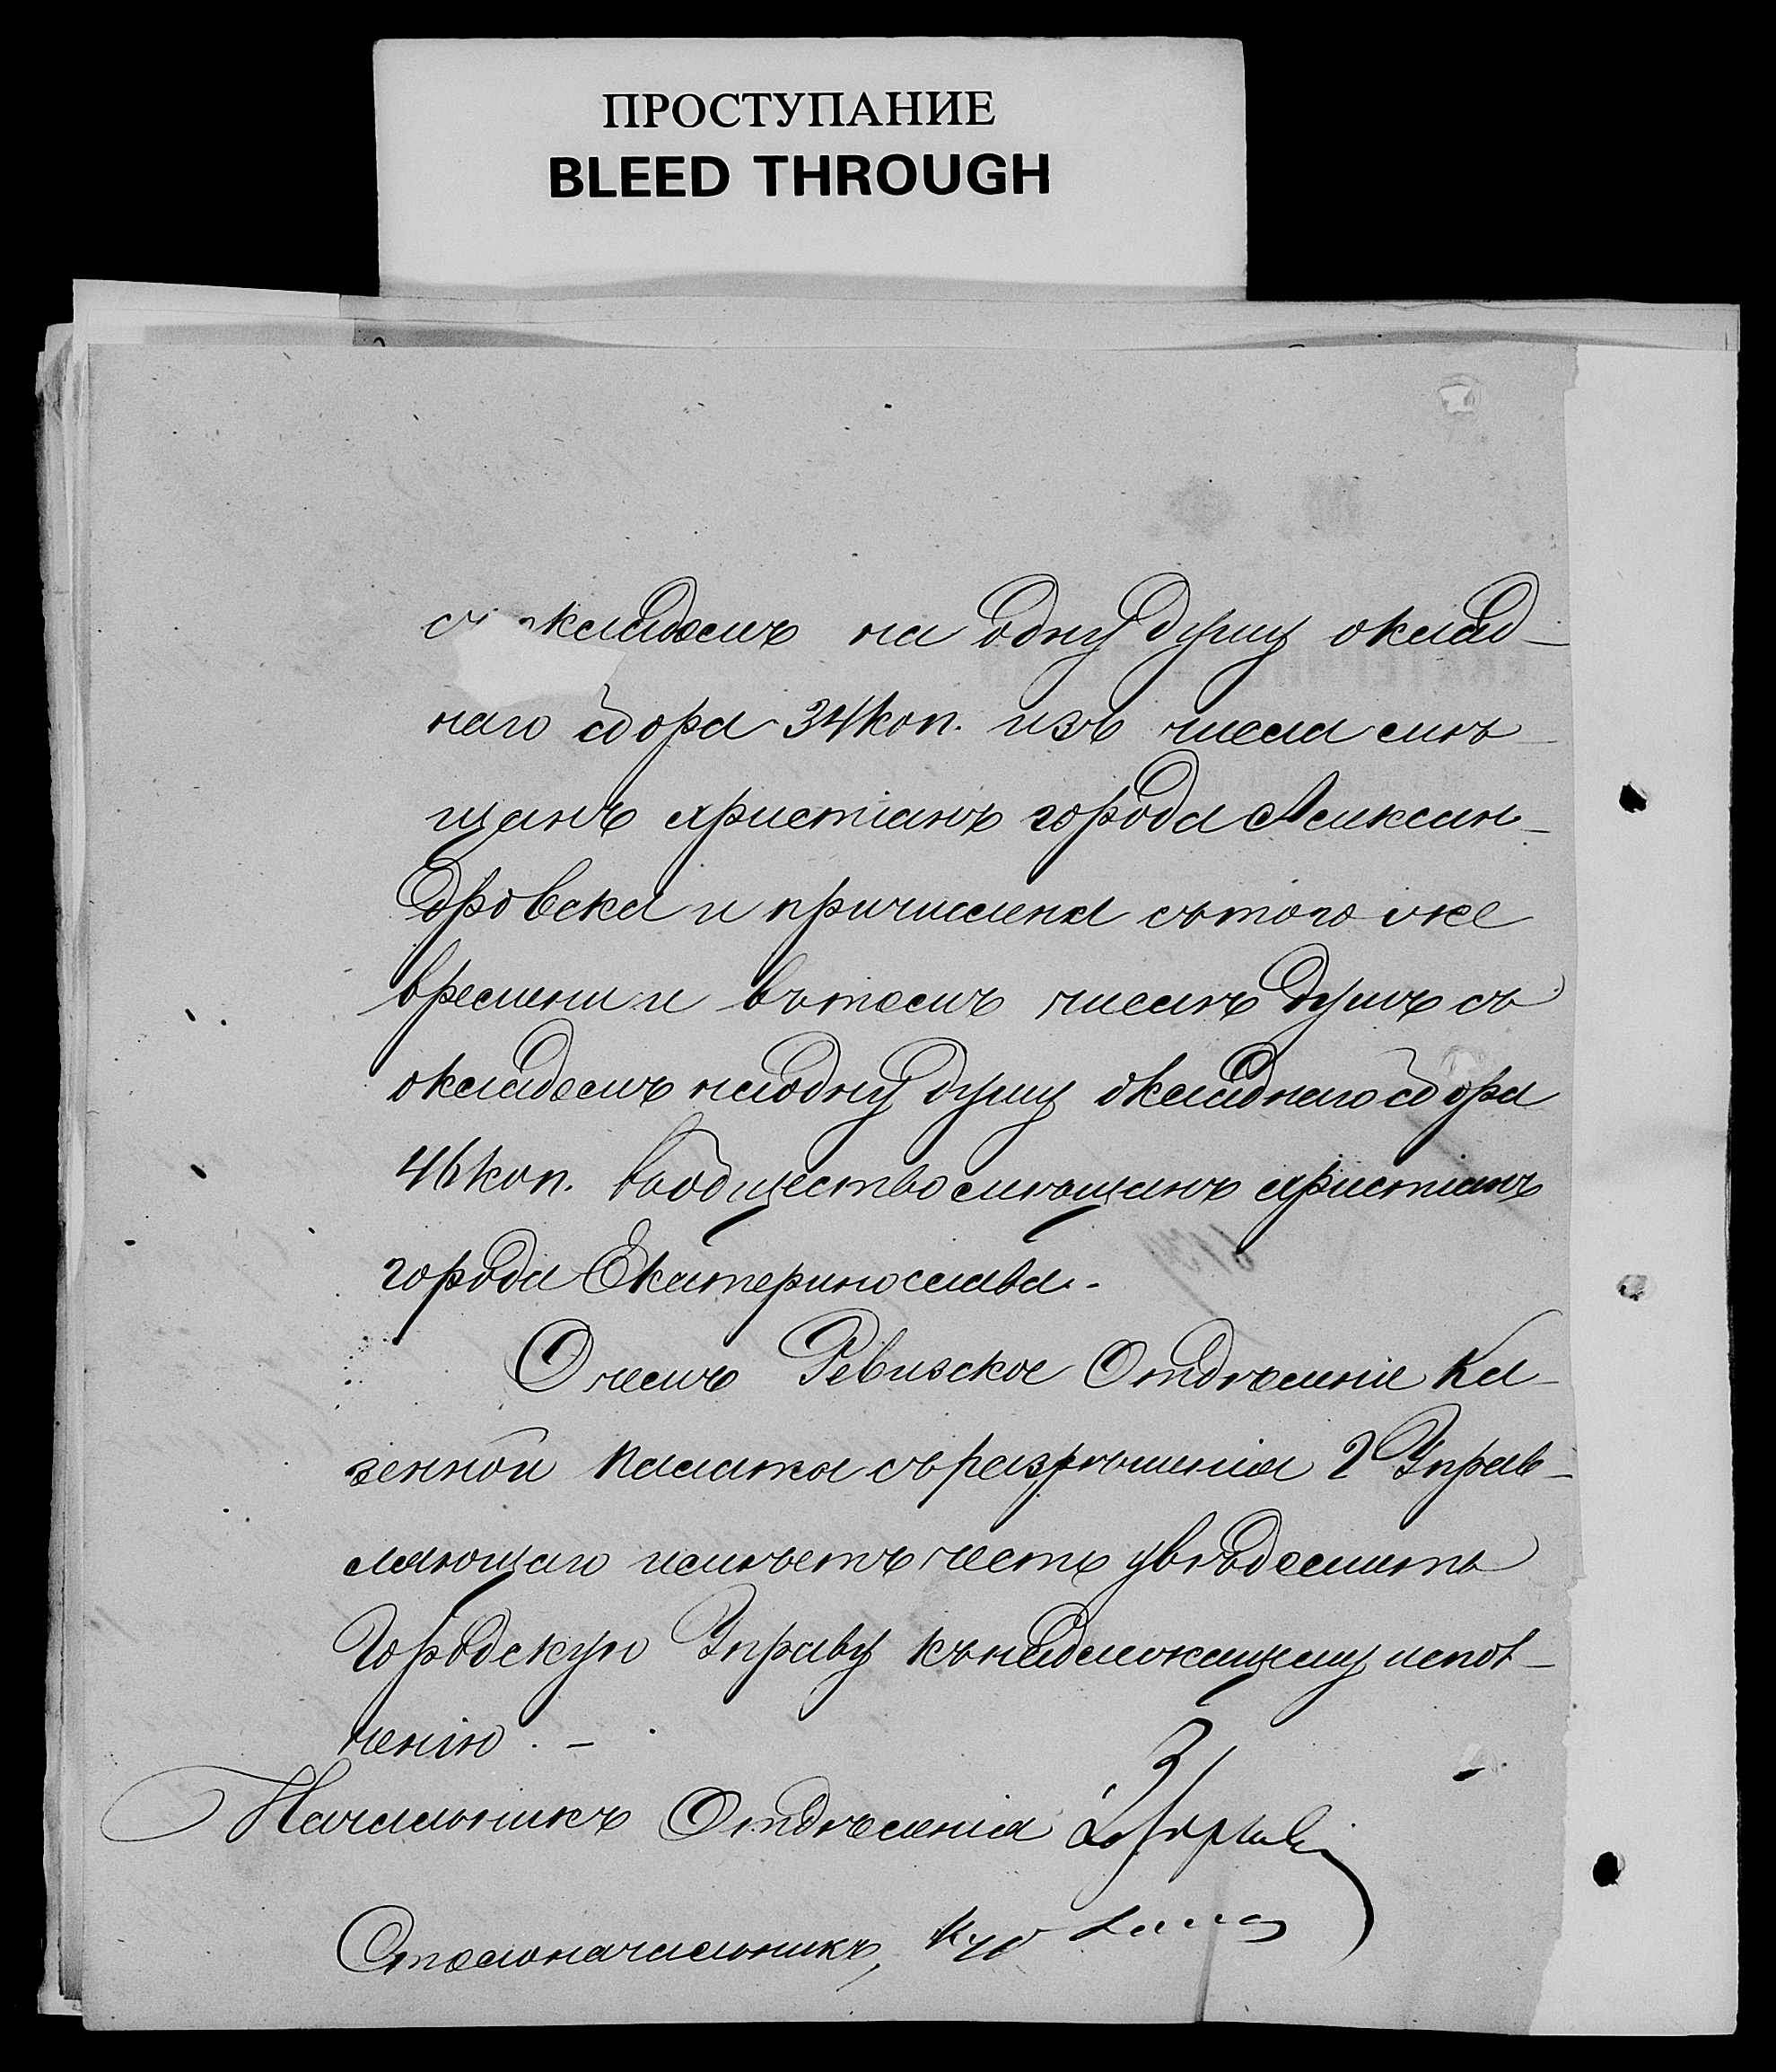 ПРОСТУПАНИЕ
BLEED THROUGH
съ окладомъ на одну душу оклад-
наго сбора 34 коп. изъ числа мѣ-
щанъ христіанъ города Алексан-
дровска и причислена съ того же
времени и въ томъ числѣ душъ съ
окладомъ на одну душу окладнаго сбора
46 коп. въ общество мѣщанъ христіанъ
города Екатеринослава.-
О чемъ Ревизское Отдѣленіе Ка-
зенной Палаты съ разрѣшенія Г. Управ-
ляющаго имѣетъ честь увѣдомить
Городскую Управу къ надлежащему испол-
ненію.-
Начальникъ Отдѣленія
Столоначальникъ,